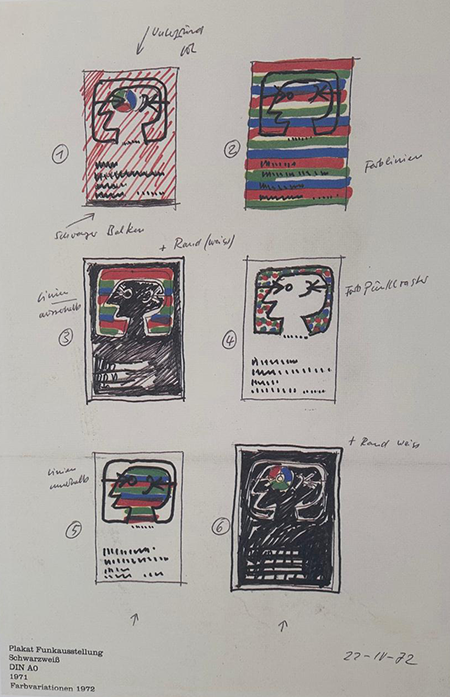 Untergrund
rot
①
②
Farblinien
Schwarzer Balken
+ Rand (weiss)
Linien
ausserhalb
③
④
Farb Punktraster
+ Rand weiss
Linien
innerhalb
⑤
⑥
Plakat Funkausstellung
Schwarzweiß
DIN A0
1971
Farbvariationen 1972
22-IV-72